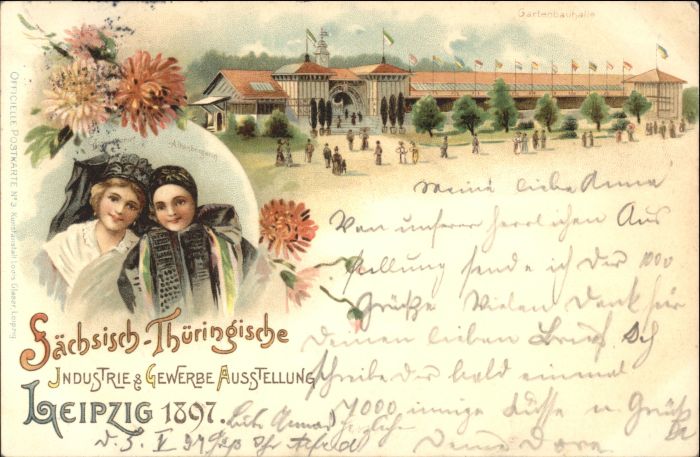 Gartenbauhalle
OFFICIELLE POSTKARTE Nº 3 Kunstanstalt Louis Glaser Leipzig
Altenbergerin
Sächsisch-Thüringische
INDUSTRIE & GEWERBE AUSSTELLUNG
LEIPZIG 1897.
Meine liebe Anna
Von unserer herrlichen Aus
stellung sende ich Dir 1000
Grüße Vielen Dank für
Deinen lieben Brief. Ich
schreibe Dir bald einmal
1000 innige Küsse u. Grüße
Deine Dora
d. 5. V 97